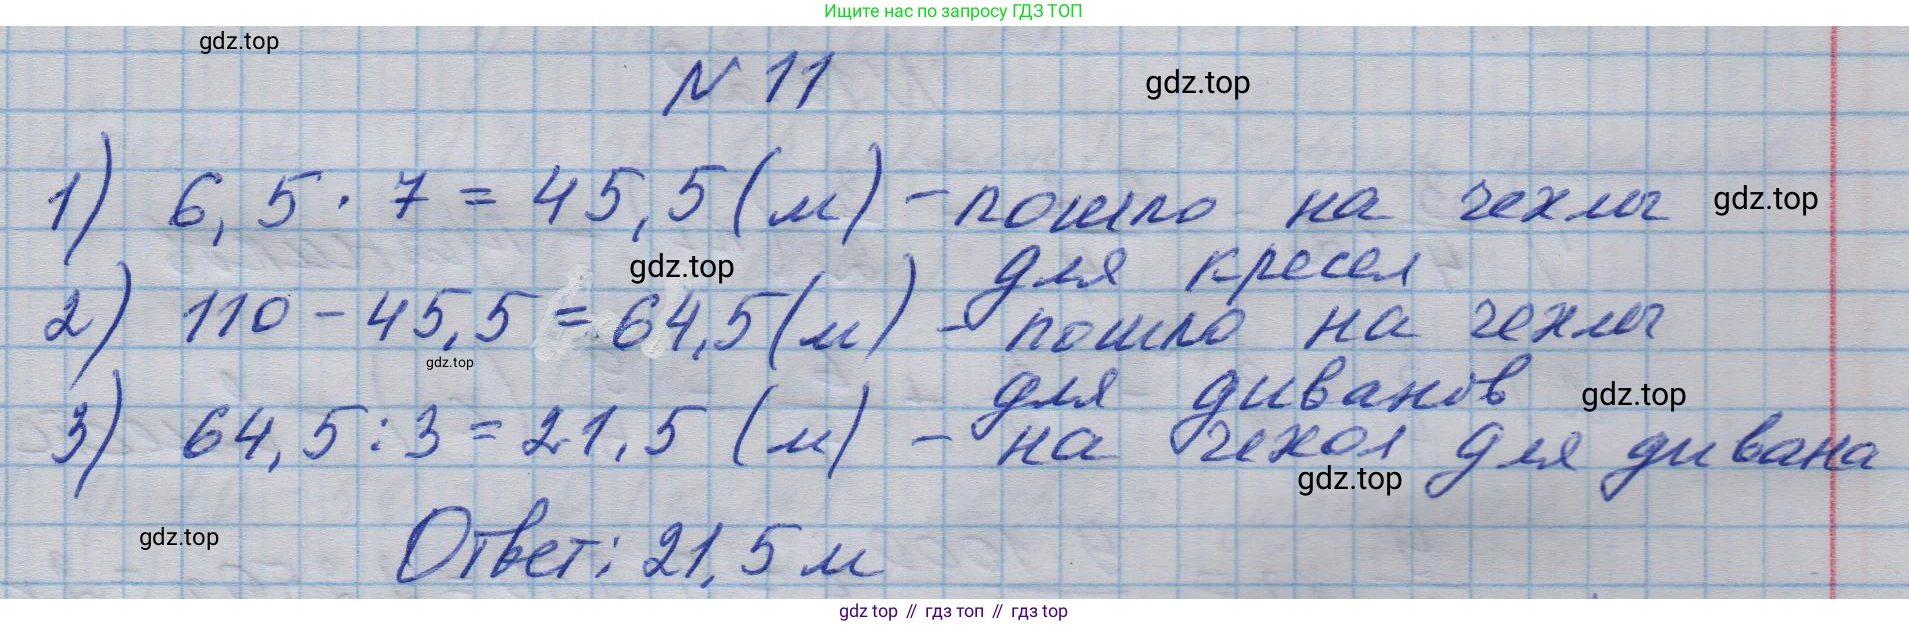 Ищите нас по запросу ГДЗ ТОП
gdz.top
N 11
gdz.top
1) 6,5 · 7 = 45,5 (м) - пошло на чехлы
gdz.top
для кресел
gdz.top
2) 110 - 45,5 = 64,5 (м) - пошло на чехлы
gdz.top
для диванов
gdz.top
3) 64,5 : 3 = 21,5 (м) - на чехол для дивана
gdz.top
gdz.top
Ответ: 21,5 м
gdz top // гдз топ // гдз top